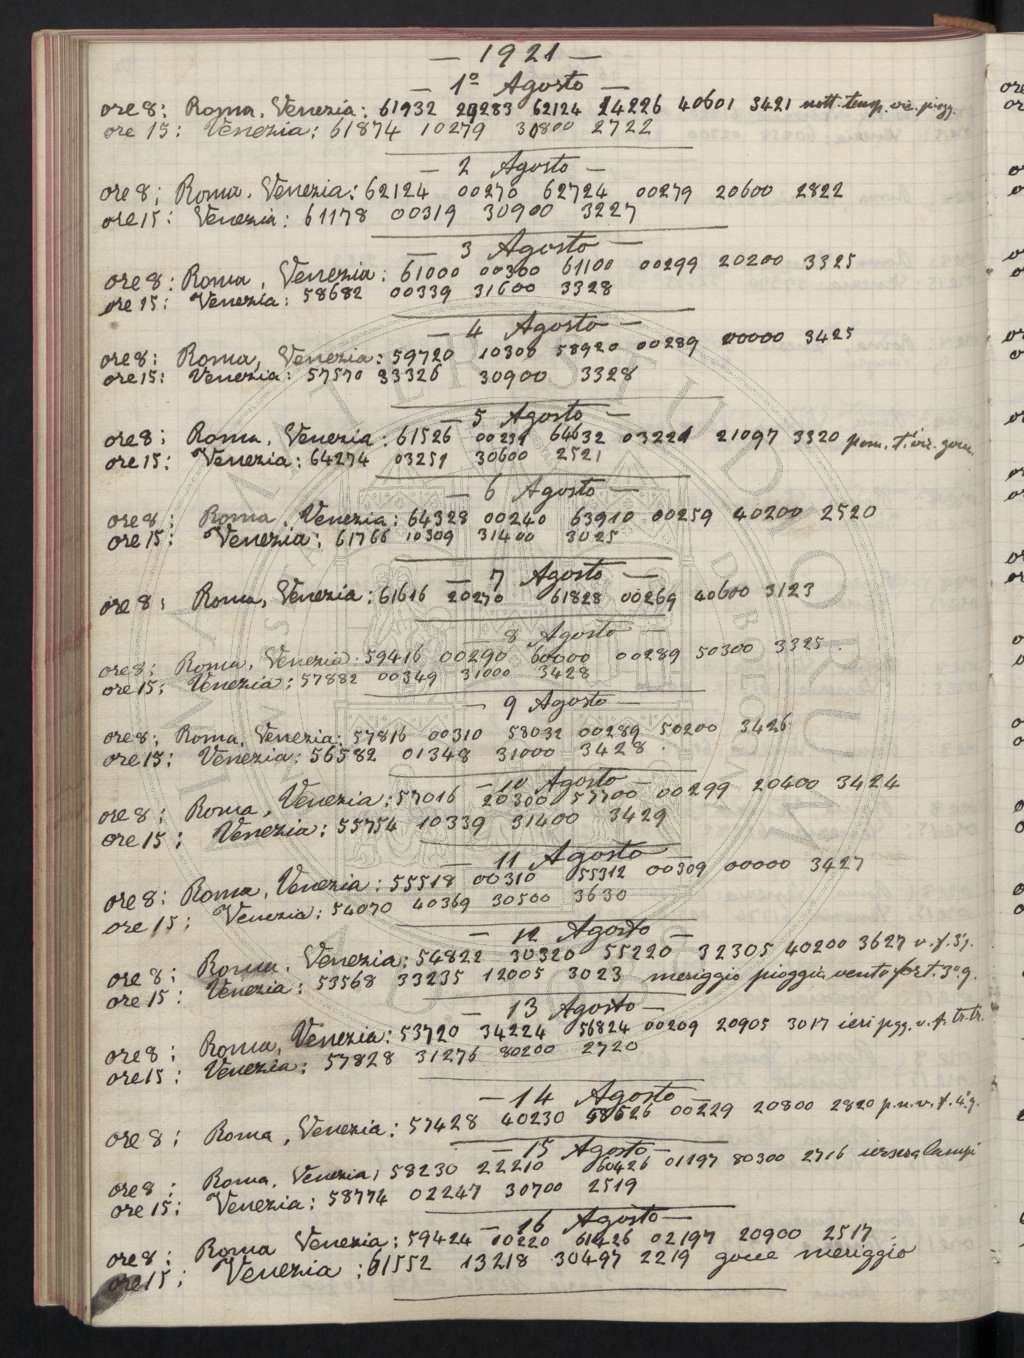 — 1921 —
— 1º Agosto —
ore 8: Roma, Venezia: 61932 29283 62124 14226 40601 3421 nott. temp. vic. piogg.
ore 15: Venezia: 61874 10279 30800 2722
— 2 Agosto —
ore 8: Roma, Venezia: 62124 00270 62724 00279 20600 2822
ore 15: Venezia: 61178 00319 30900 3227
— 3 Agosto —
ore 8: Roma, Venezia: 61000 00300 61100 00299 20200 3325
ore 15: Venezia: 58682 00339 31600 3328
— 4 Agosto —
ore 8: Roma, Venezia: 59720 10300 58920 00289 00000 3425
ore 15: Venezia: 57570 33326 30900 3328
— 5 Agosto —
ore 8: Roma, Venezia: 61526 00231 64632 03221 21097 3320 pom. t. vic.
ore 15: Venezia: 64274 03251 30600 2521
— 6 Agosto —
ore 8: Roma, Venezia: 64328 00240 63910 00259 40200 2520
ore 15: Venezia: 61766 10309 31400 3025
— 7 Agosto —
ore 8: Roma, Venezia: 61616 20270 61828 00269 40600 3123
— 8 Agosto —
ore 8: Roma, Venezia: 59416 00290 60000 00289 50300 3325.
ore 15: Venezia: 57882 00349 31000 3428
— 9 Agosto —
ore 8: Roma, Venezia: 57816 00310 58032 00289 50200 3426
ore 15: Venezia: 56582 01348 31000 3428.
— 10 Agosto —
ore 8: Roma, Venezia: 57016 20300 57700 00299 20400 3424
ore 15: Venezia: 55754 10339 31400 3429
— 11 Agosto —
ore 8: Roma, Venezia: 55518 00310 55312 00309 00000 3427
ore 15: Venezia: 54070 40369 30500 3630
— 12 Agosto —
ore 8: Roma, Venezia: 54822 30320 55220 32305 40200 3627 v. f. 3º g.
ore 15: Venezia: 53568 33235 12005 3023 meriggio pioggia vento fort. 3º g.
— 13 Agosto —
ore 8: Roma, Venezia: 53720 34224 56824 00209 20905 3017 ieri pgg. v. f. tr. tr.
ore 15: Venezia: 57828 31276 80200 2720
— 14 Agosto —
ore 8: Roma, Venezia: 57428 40230 58626 00229 20800 2820 p. n. v. f. 4º g.
— 15 Agosto —
ore 8: Roma, Venezia: 58230 22210 60426 01197 80300 2716 iersera lampi
ore 15: Venezia: 58774 02247 30700 2519
— 16 Agosto —
ore 8: Roma Venezia: 59424 00220 61426 02197 20900 2517
ore 15: Venezia: 61552 13218 30497 2219 gocce meriggio